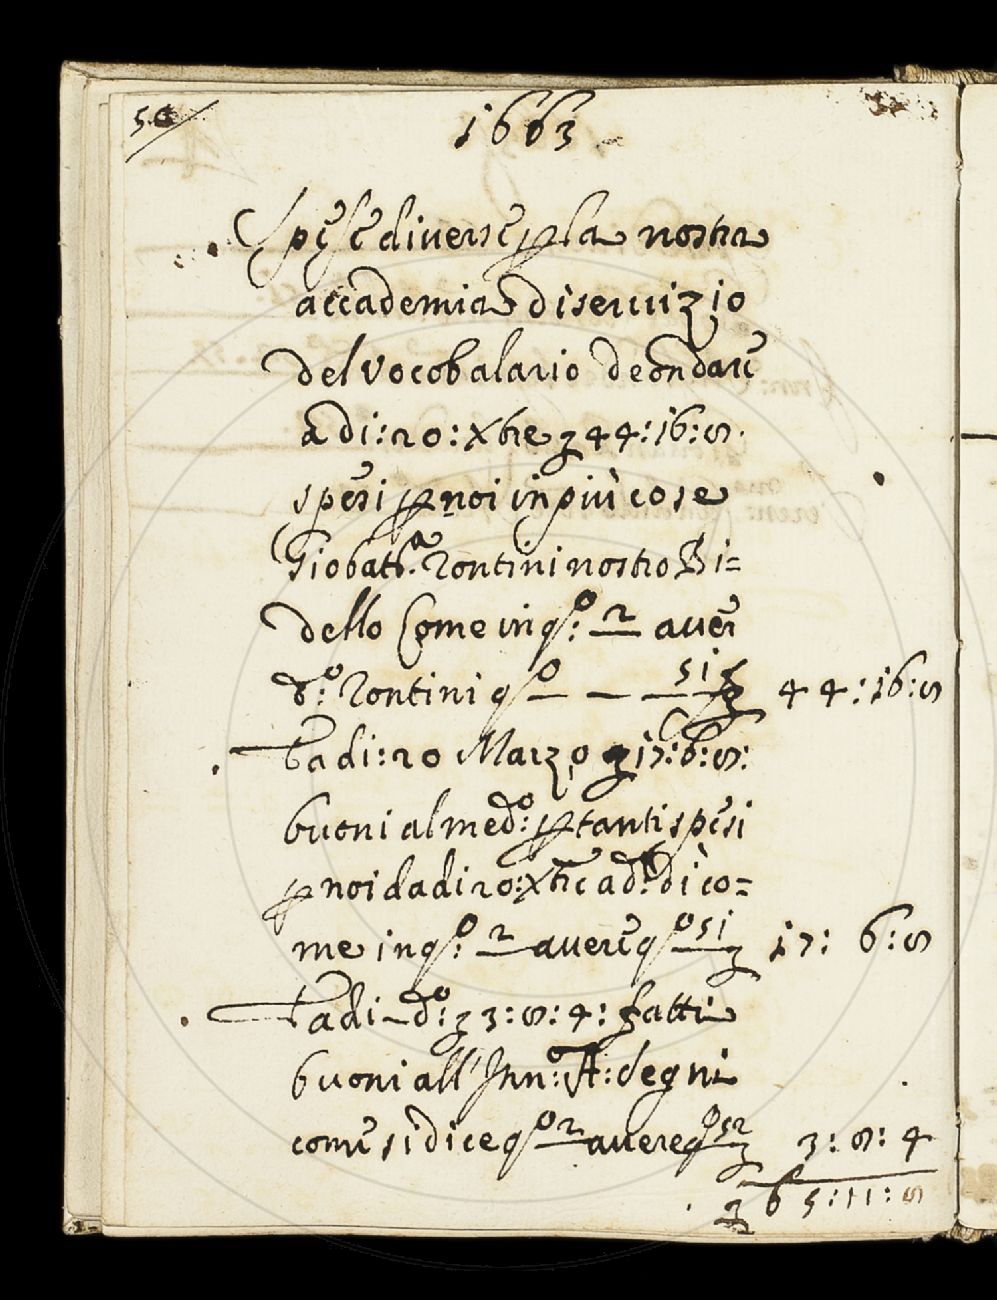 50
1663
Spese diverse p la nostra
accademia di servizio
del vocobalario deon dare
a di: 20: Xbre 44:16:8.
spesi p noi in più cose
Giobatt.a Rontini nostro Bi=
dello Come in q.o: 2 aver
d.o: Rontini q.o 51 44:16:8
E a di: 20 Marzo 17:6:8:
buoni al med.o: p tanti spesi
p noi da di 20: Xbre a d.o: di co=
me in q.o: 2 avere q.o 51 17: 6:8
E a di d.o: 3:8:4: fatti
buoni all' Inn.o: A: segni
come si dice q.o 2 avere q.o 52 3:8:4
65:11:8